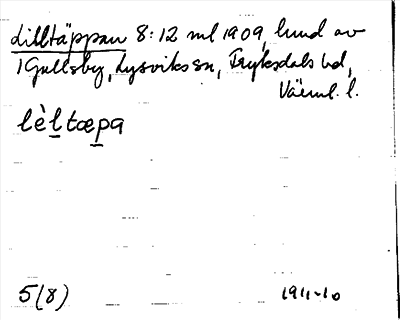 Lilltäppan 8:12 ml 1909, lund av
1 Gullsby, Lysviks sn, Fryksdals hd,
Värml. l.
lèḻtæp̱a
5(8) 1911-10